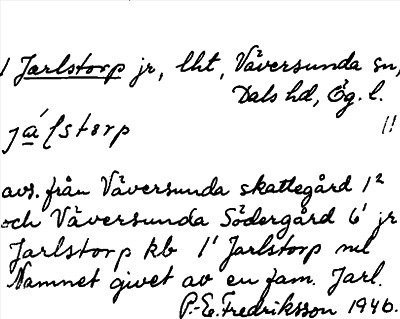 1 Jarlstorp jr, lht, Väversunda sn,
Dals hd, Ög. l.
jáʃstɵrp 11
avs. från Väversunda skattegård 1²
och Väversunda Södergård 6¹ jr
Jarlstorp kb 1¹ Jarlstorp ml
Namnet givet av en fam. Jarl.
P.-E. Fredriksson 1946.